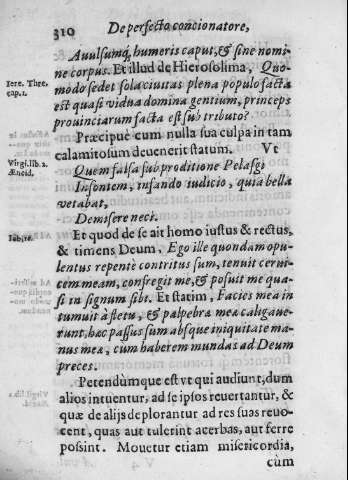 310 De perfecto concionatore,
Avulsumq́; humeris caput, & sine nomi-
ne corpus. Et illud de Hierosolima, Quo-
modo sedet sola ciuitas plena populo facta
est quasi vidua domina gentium, princeps
prouinciarum facta est sub tributo?
Iere. Thre.
cap. 1.
Præcipuè cum nulla sua culpa in tam
calamitosum deuenerit statum. Vt
Quem falsa sub proditione Pelasgi
Insontem, infando iudicio, quia bella
vetabat,
Demisere neci.
Virgi. lib. 2.
Æneid.
Et quod de se ait homo iustus & rectus,
& timens Deum, Ego ille quondam opu-
lentus repentè contritus sum, tenuit cerui-
cem meam, confregit me, & posuit me qua-
si in signum sibi. Et statim, Facies mea in
tumuit à fletu, & palpebræ meæ caligaue-
runt, hæc passus sum absque iniquitate ma-
nus meæ, cum haberem mundas ad Deum
preces.
Iob, 16.
Petendùmque est vt qui audiunt, dum
alios intuentur, ad se ipsos reuertantur, &
quæ de alijs deplorantur ad res suas reuo-
cent, quas aut tulerint acerbas, aut ferre
possint. Mouetur etiam misericordia,
cùm